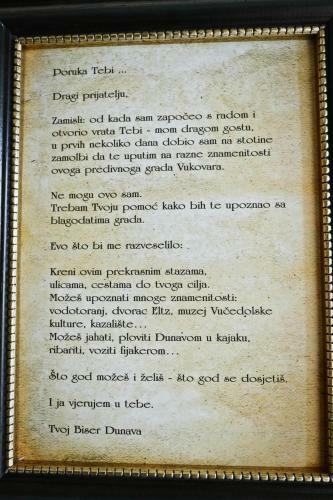 Poruka Tebi ...
Dragi prijatelju,
Zamisli: od kada sam započeo s radom i
otvorio vrata Tebi - mom dragom gostu,
u prvih nekoliko dana dobio sam na stotine
zamolbi da te uputim na razne znamenitosti
ovoga predivnoga grada Vukovara.
Ne mogu ovo sam.
Trebam Tvoju pomoć kako bih te upoznao sa
blagodatima grada.
Evo što bi me razveselilo:
Kreni ovim prekrasnim stazama,
ulicama, cestama do tvoga cilja.
Možeš upoznati mnoge znamenitosti:
vodotoranj, dvorac Eltz, muzej Vučedolske
kulture, kazalište...
Možeš jahati, ploviti Dunavom u kajaku,
ribariti, voziti fijakerom...
Što god možeš i želiš - što god se dosjetiš.
I ja vjerujem u tebe.
Tvoj Biser Dunava